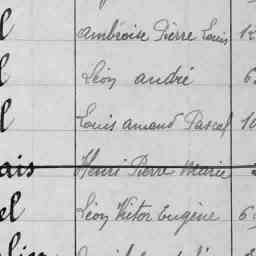 l Ambroise Pierre Louis 12
l Léon André 6
l Louis Amand Pascal 10
ais Henri Pierre Marie
el Léon Victor Eugène 6